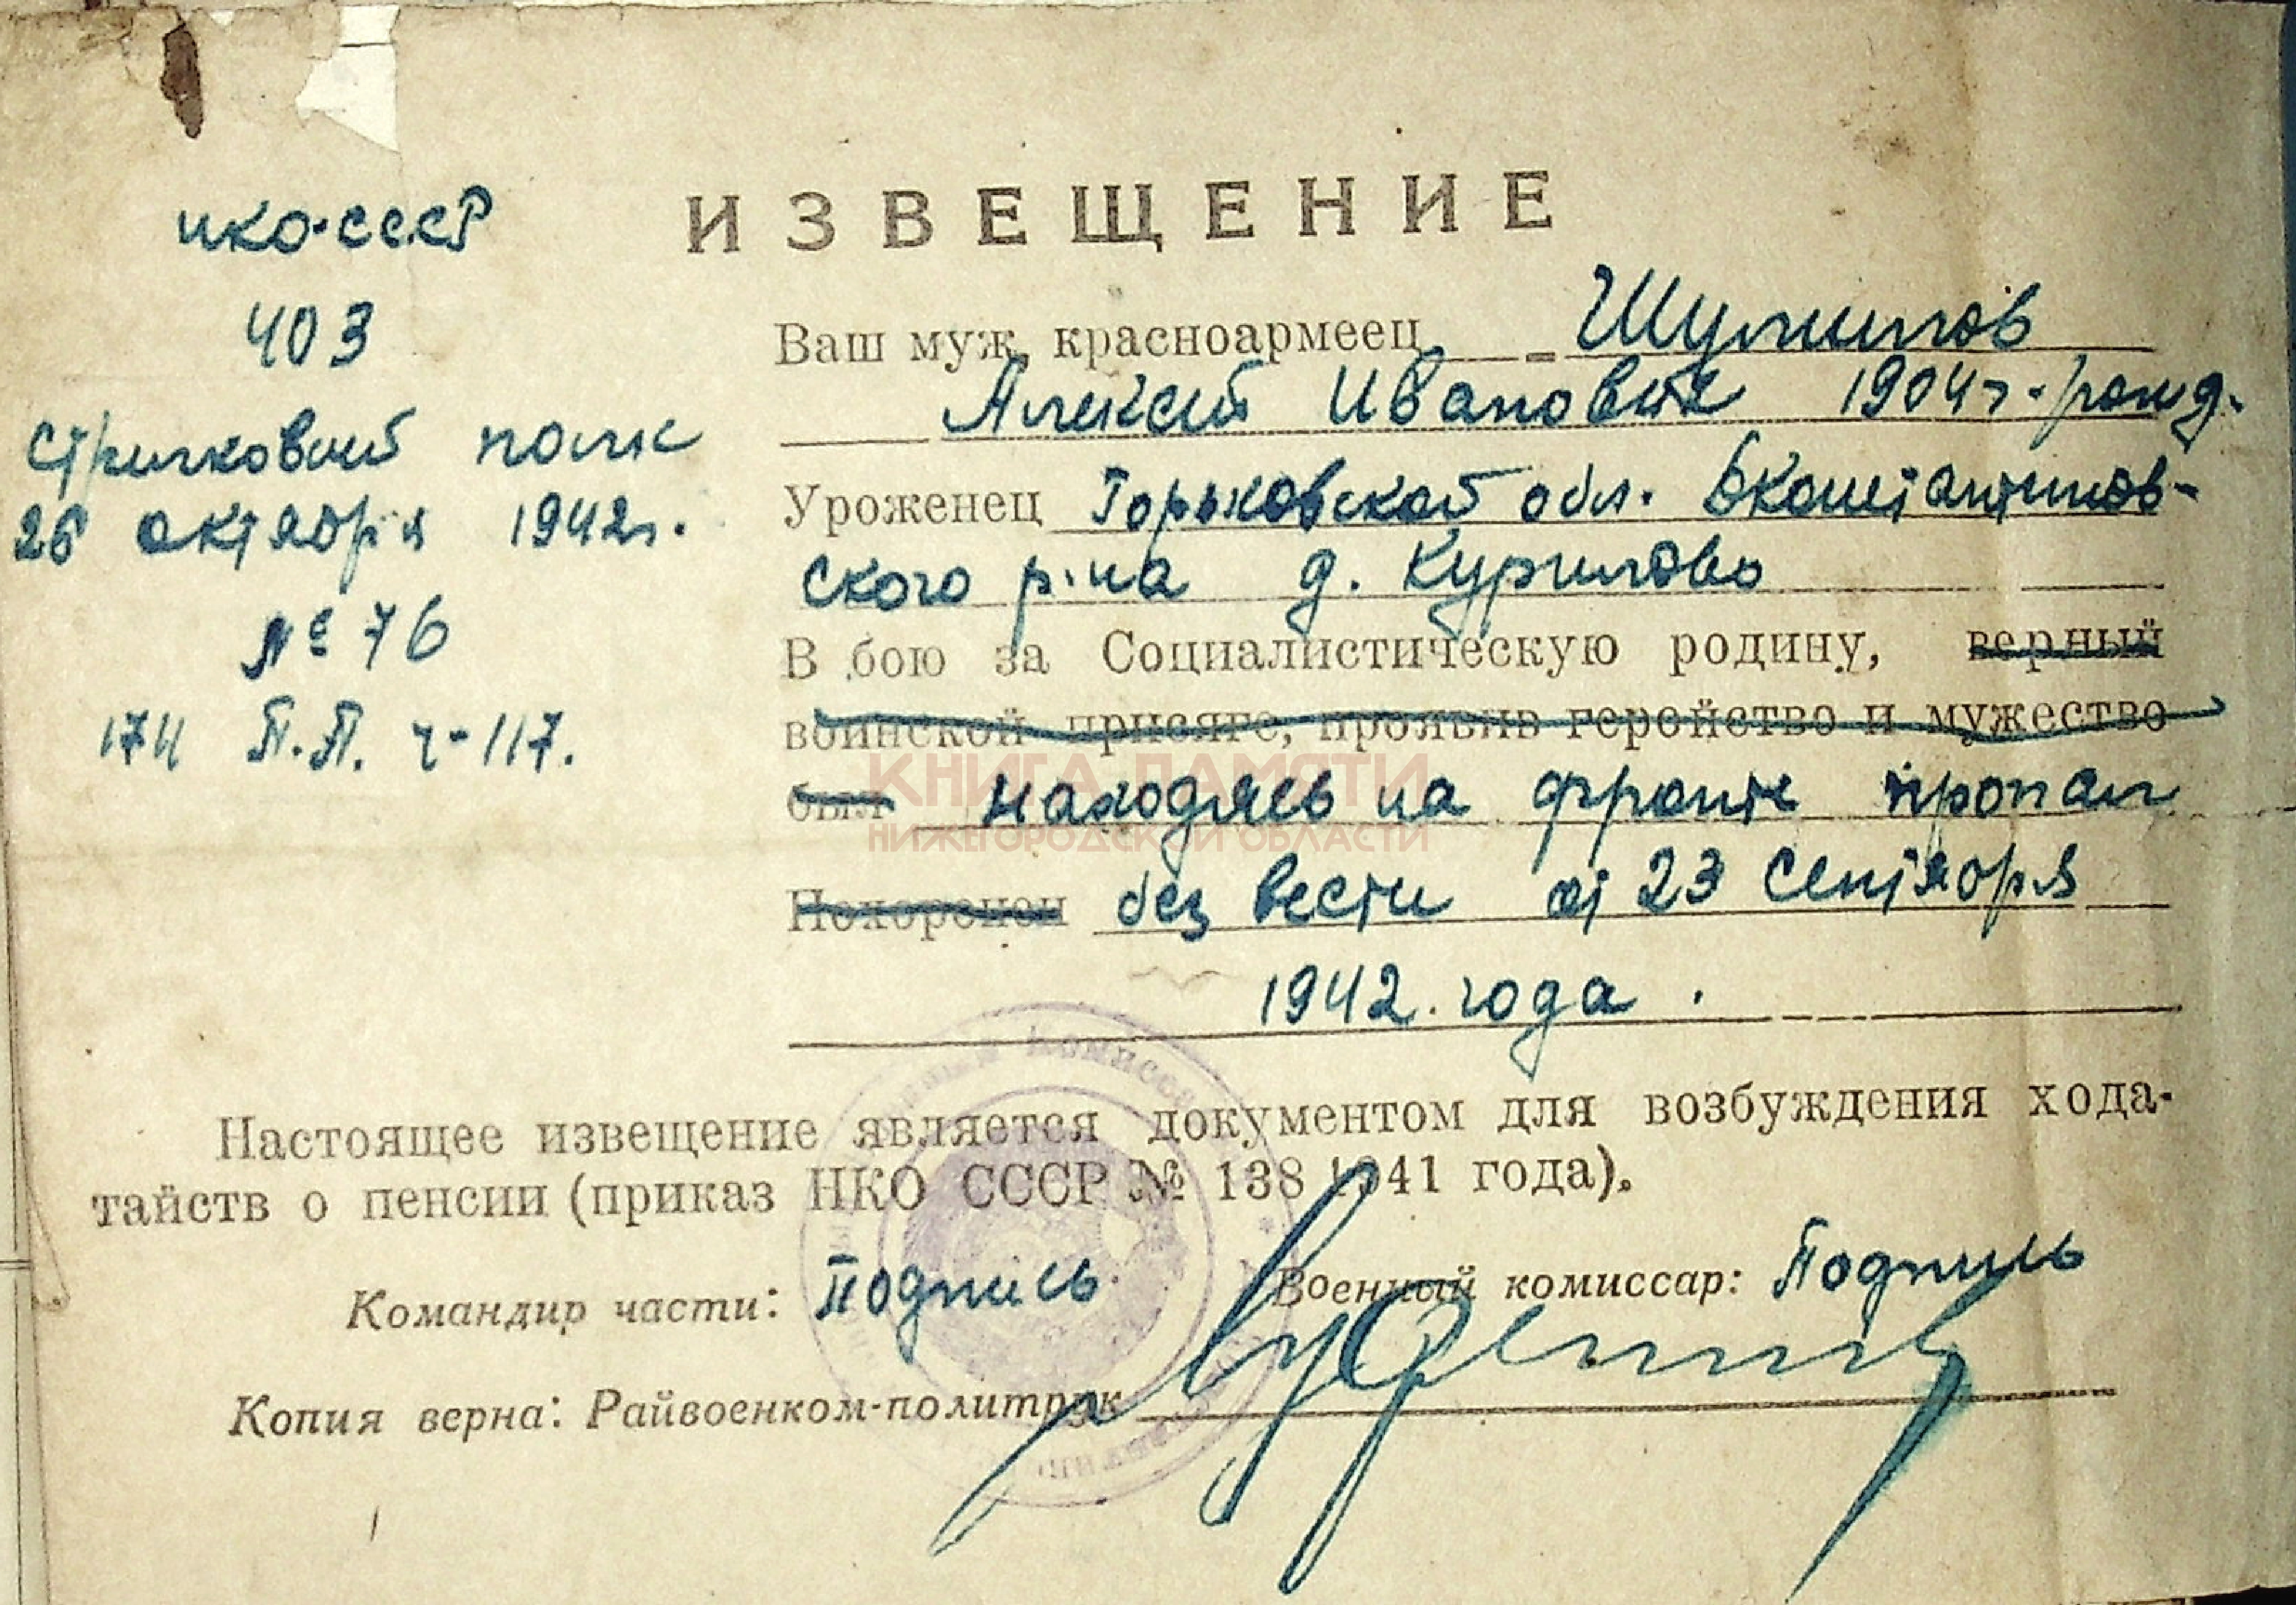 ИЗВЕЩЕНИЕ
НКО-СССР
403
Стрелковый полк
26 октября 1942г.
№ 76
174 П.П. ч-117.
Ваш муж, красноармеец
Алексей Иванович 1904г. рожд.
Уроженец Горьковской обл. Бконстантинов-
ского р-на д. Курилово
В бою за Социалистическую родину, верный
воинской присяге, проявив геройство и мужество
был находясь на фронте пропал
Похоронен без вести от 23 сентября
1942. года.
КНИГА ПАМЯТИ
НИЖЕГОРОДСКОЙ ОБЛАСТИ
Настоящее извещение является документом для возбуждения хода-
тайств о пенсии (приказ НКО СССР № 138 1941 года).
Командир части: Подпись. Военный комиссар: Подпись
Копия верна: Райвоенком-политрук